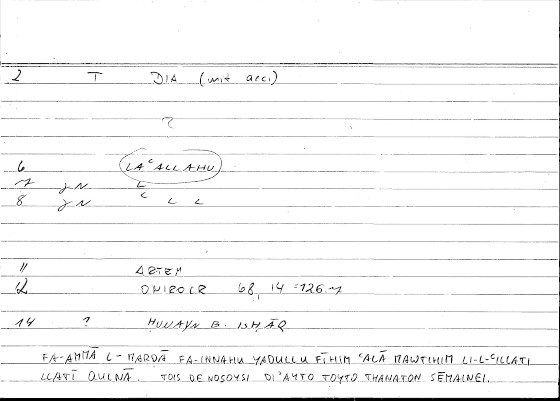 2 T DIA (mit acc.)
?
6 LAʿALLAHU
7 JN L
8 JN C L L
11 ARTEM
12 ONIROCR 68, 14 = 126.7
14 ? HUNAYN B. ISHĀQ
FA-AMMĀ L-MARDĀ FA-INNAHU YADULLU FĪHIM ʿALĀ MAWTIHIM LI-L-ʿILLATI
LLATĪ QULNĀ. TOIS DE NOSOYSI DI'AYTO TOYTO THANATON SĒMAINEI.